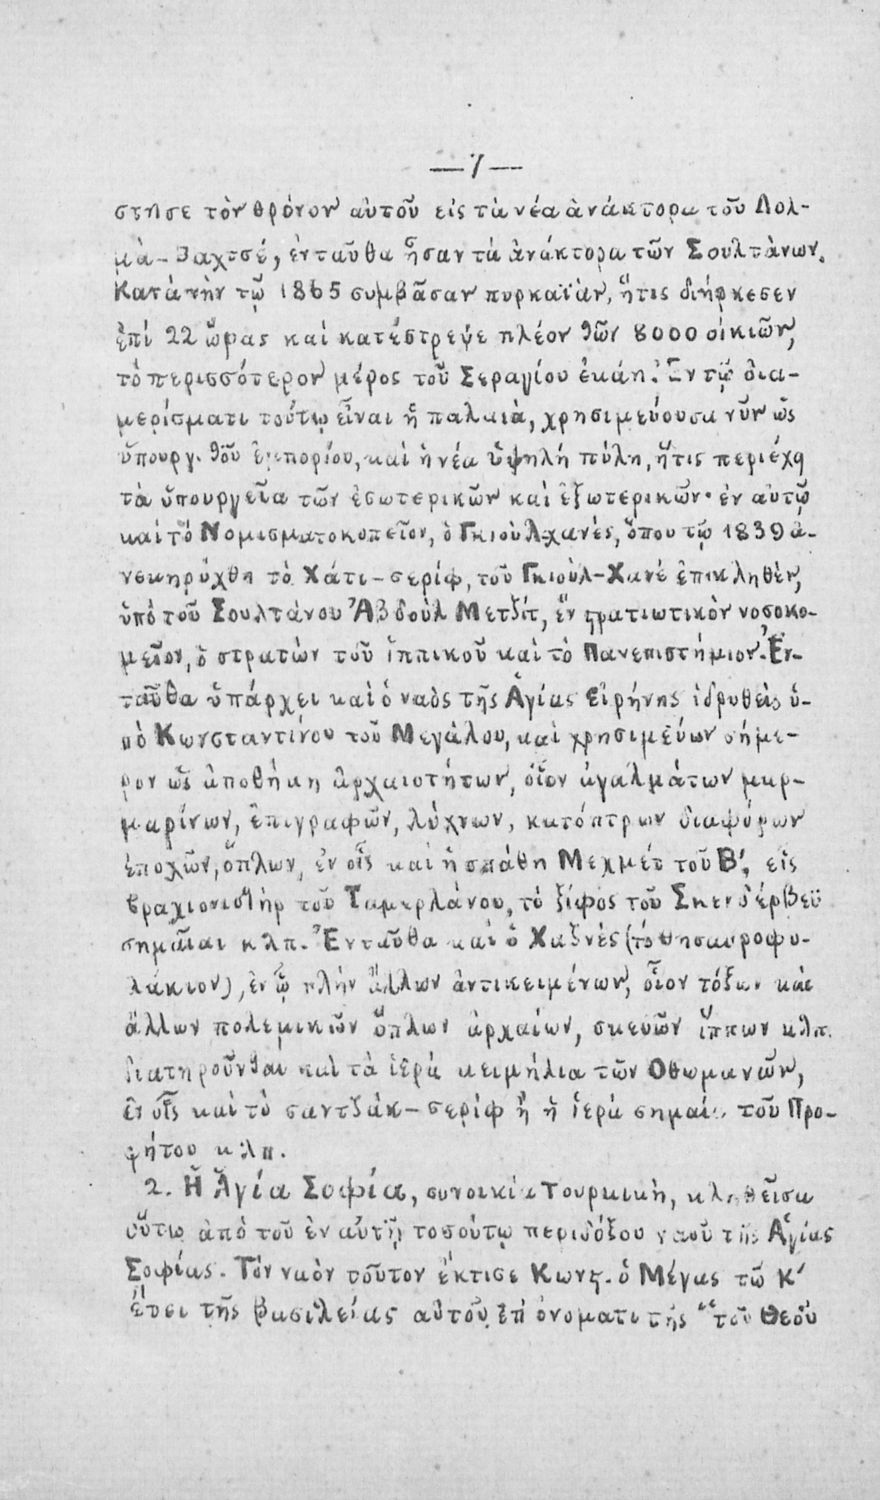 —7—
στησε τὸν θρόνον αὑτοῦ εἰς τὰ νέα ἀνάκτορα τοῦ Δολ-
μὰ-Βαχτσέ, ἐνταῦθα ἦσαν τὰ ἀνάκτορα τῶν Σουλτάνων.
Κατὰ τὴν τῷ 1865 συμβᾶσαν πυρκαϊὰν, ἥτις διήρκεσεν
ἐπὶ 22 ὥρας καὶ κατέστρεψε πλέον τῶν 8000 οἰκιῶν,
τὸ περισσότερον μέρος τοῦ Σεραγίου ἐκάη. Ἐν τῷ δια-
μερίσματι τούτῳ εἶναι ἡ παλαιὰ, χρησιμεύουσα νῦν ὡς
ὑπουργ. τοῦ ἐμπορίου, καὶ ἡ νέα ὑψηλὴ πύλη, ἥτις περιέχῃ
τὰ ὑπουργεῖα τῶν ἐσωτερικῶν καὶ ἐξωτερικῶν· ἐν αὐτῷ
καὶ τὸ Νομισματοκοπεῖον, ὁ Γκιοὺλχανὲς, ὅπου τῷ 1839 ἀ-
νεκηρύχθη τὸ Χάτι-σερίφ, τοῦ Γκιοὺλ-Χανὲ ἐπικληθὲν,
ὑπὸ τοῦ Σουλτάνου Ἀβδοὺλ Μετζίτ, ἓν στρατιωτικὸν νοσοκο-
μεῖον, ὁ στρατὼν τοῦ ἱππικοῦ καὶ τὸ Πανεπιστήμιον. Ἐν-
ταῦθα ὑπάρχει καὶ ὁ ναὸς τῆς Ἁγίας Εἰρήνης ἱδρυθεὶς ὑ-
πὸ Κωνσταντίνου τοῦ Μεγάλου, καὶ χρησιμεύων σήμε-
ρον ὡς ἀποθήκη ἀρχαιοτήτων, οἷον ἀγαλμάτων μαρ-
μαρίνων, ἐπιγραφῶν, λύχνων, κατόπτρων διαφόρων
ἐποχῶν, ὅπλων, ἐν οἷς καὶ ἡ σπάθη Μεχμὲτ τοῦ Β΄, εἷς
βραχιονιστὴρ τοῦ Ταμερλάνου, τὸ ξίφος τοῦ Σκενδέρβεϋ
σημαῖαι κλπ. Ἐνταῦθα καὶ ὁ Χαζνὲς (τὸ θησαυροφυ-
λάκιον), ἐν ᾧ πλὴν ἄλλων ἀντικειμένων, οἷον τόξων καὶ
ἄλλων πολεμικῶν ὅπλων ἀρχαίων, σκευῶν ἵππων κλπ.
διατηροῦνται καὶ τὰ ἱερὰ κειμήλια τῶν Οθωμανῶν,
ἐν οἷς καὶ τὸ σαντζὰκ-σερίφ ἢ ἡ ἱερὰ σημαία τοῦ Προ-
φήτου κλπ.
2. Ἡ Ἁγία Σοφία, συνοικία Τουρκικὴ, κληθεῖσα
οὕτω ἀπὸ τοῦ ἐν αὐτῇ τοσούτῳ περιδόξου ναοῦ τῆς Ἁγίας
Σοφίας. Τὸν ναὸν τοῦτον ἔκτισε Κωνστ. ὁ Μέγας τῷ Κ΄
ἔτει τῆς βασιλείας αὑτοῦ ἐπ' ὀνόματι τῆς «τοῦ Θεοῦ